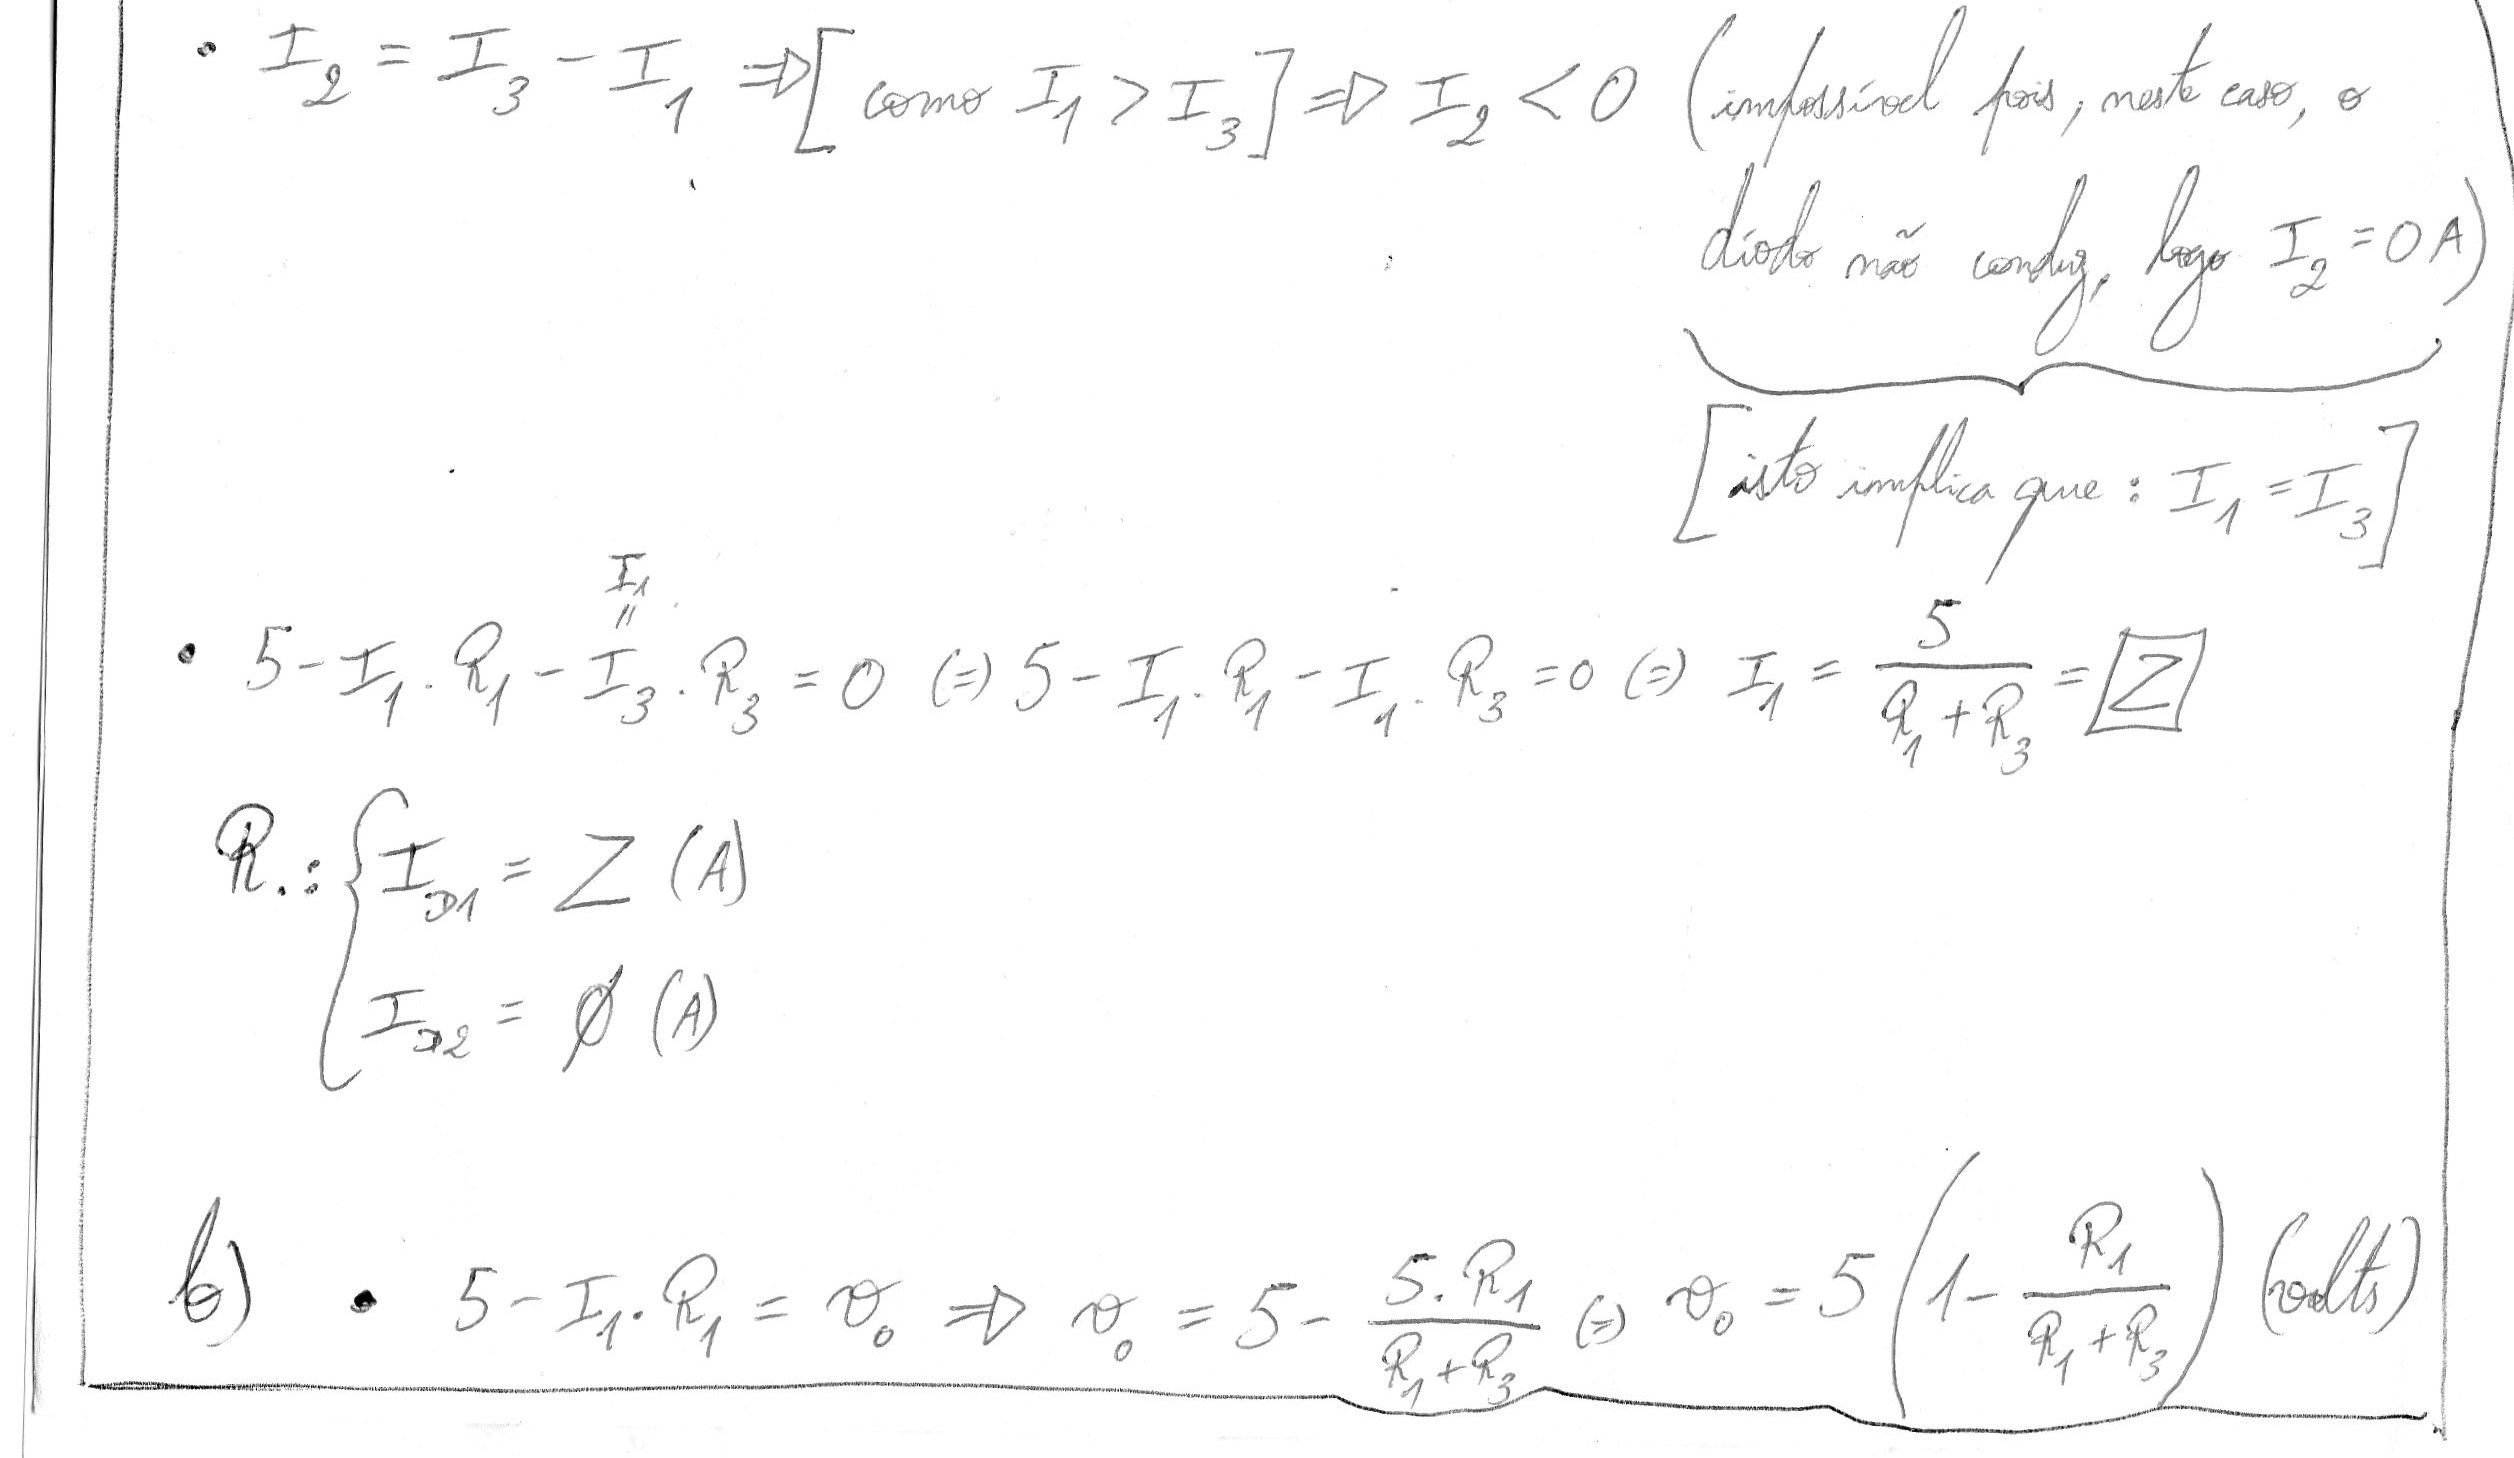 • I₂ = I₃ - I₁ ⇒ [como I₁ > I₃] ⇒ I₂ < 0 (impossível pois, neste caso, o
díodo não conduz, logo I₂ = 0 A)
[isto implica que : I₁ = I₃]
I₁
=
• 5 - I₁ . R₁ - I₃ . R₃ = 0 (=) 5 - I₁ . R₁ - I₁ . R₃ = 0 (=) I₁ = 5/(R₁ + R₃) = Z
R.: { I_D1 = Z (A)
I_D2 = Ø (A)
b) • 5 - I₁ . R₁ = v₀ ⇒ v₀ = 5 - (5 . R₁)/(R₁ + R₃) (=) v₀ = 5 (1 - R₁/(R₁ + R₃)) (volts)